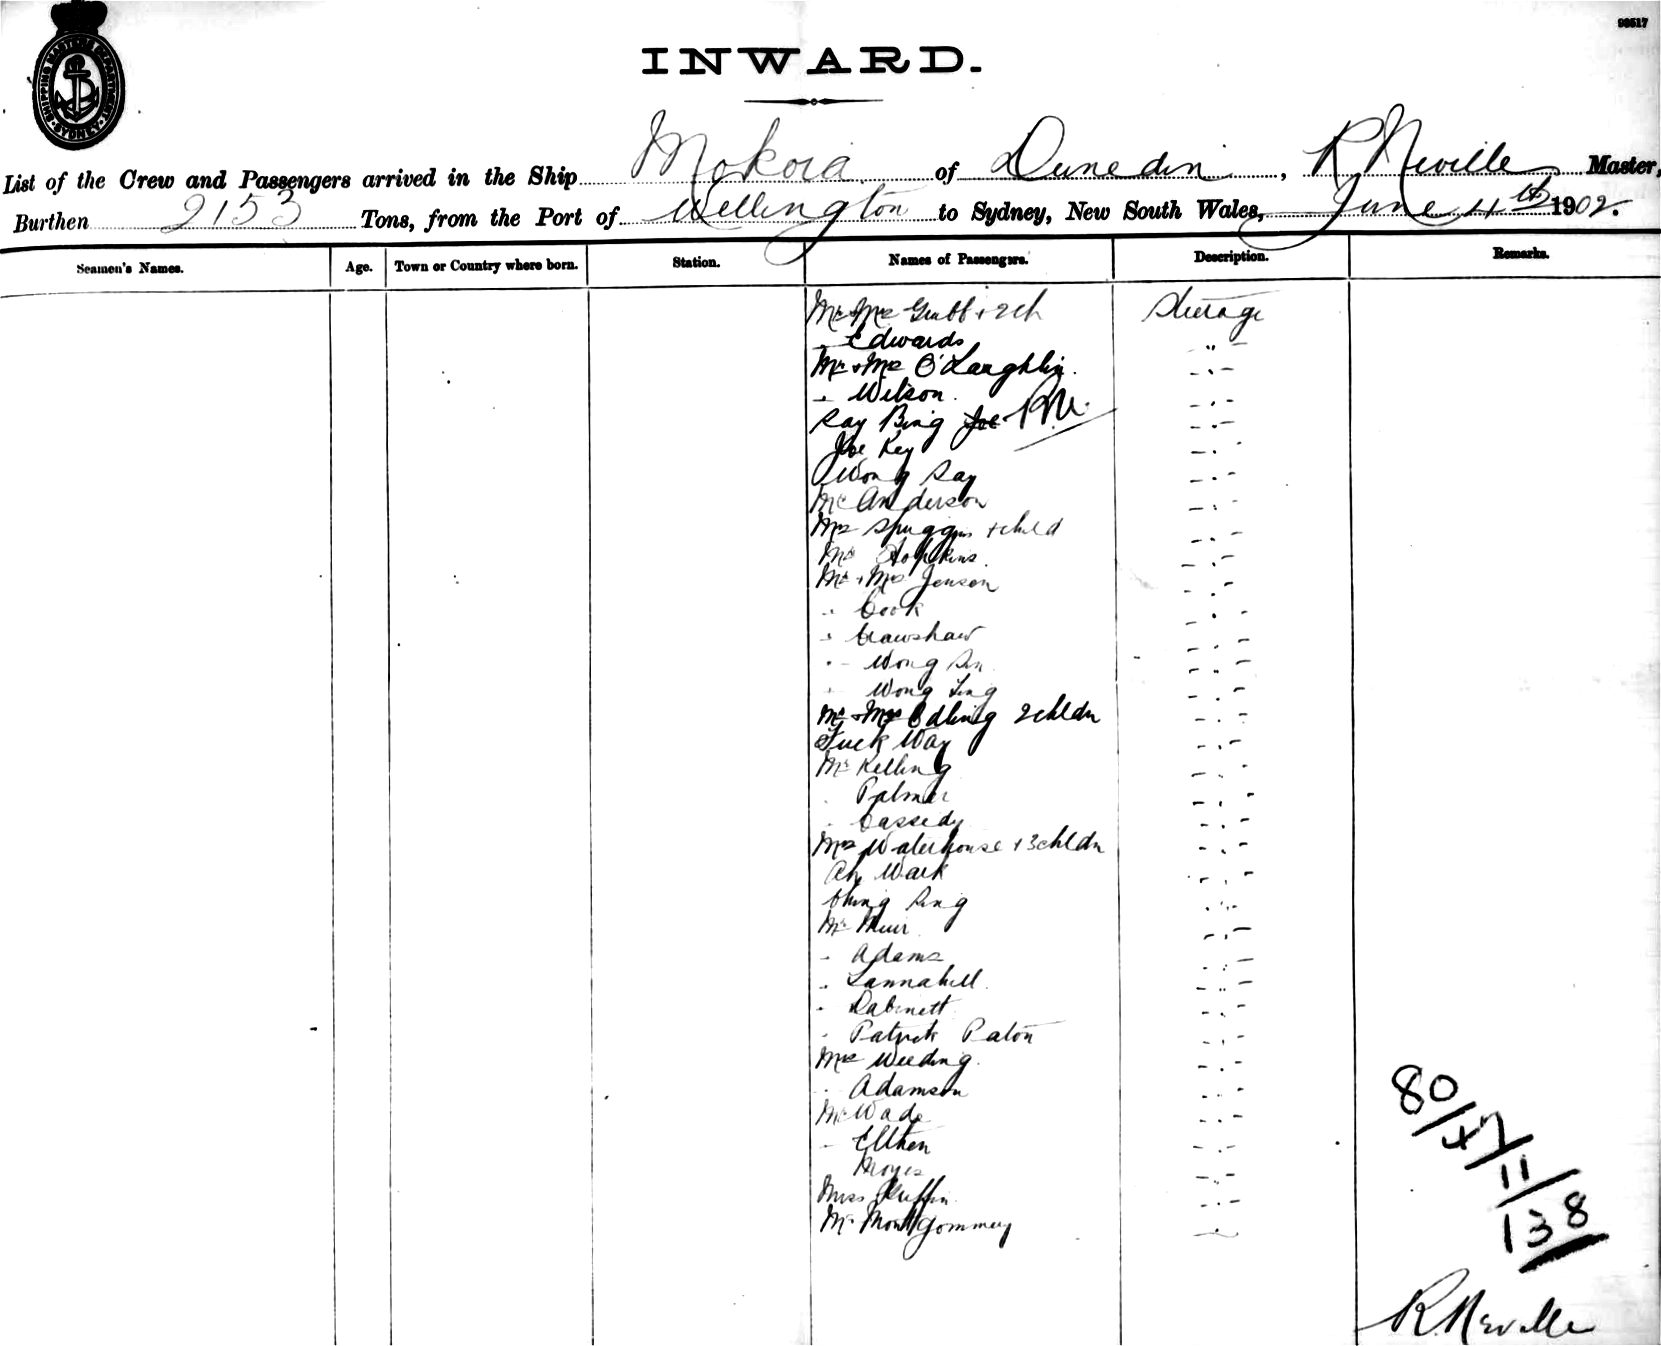 98517
SHIPPING MASTERS DEPARTMENT
SYDNEY
INWARD.
List of the Crew and Passengers arrived in the Ship Mokoia of Dunedin, R Neville Master,
Burthen 2153 Tons, from the Port of Wellington to Sydney, New South Wales, June 4th 1902.
Seamen's Names. Age. Town or Country where born. Station. Names of Passengers. Description. Remarks.
Mr + Mrs Grubb + 2 ch Steerage
" Edwards " –
Mr + Mrs O'Laughlin. – " –
" Wilson. – " –
Ray Bing Joe R.N. – " –
Joe Key – "
Wong Say – " –
Mr Anderson – " –
Mrs Spuggins + child – " –
Mr Hopkins. – " –
Mr + Mrs Jenson – " –
" Cook – " –
" Crawshaw – " –
" – Wong Sin – " –
" Wong Ling – " –
Mr + Mrs Odling 2 chldn – " –
Tuck Way – " –
Mr Kelling – " –
" Palmer – " –
" Cassedy – " –
Mrs Waterhouse + 3 chldn – " –
Ah Wark – " –
Ching Sing – " –
Mr Muir – " –
– Adams " –
" Tannahill. – " –
" Rabinett – " –
" Patrick Paton – " –
Mrs Weeding. – " –
" Adamson – " –
Mr Wade – " –
– – " –
Moyes – " –
Miss – " –
Mr Montgommery – " –
80/47
11/
138
R. Neville